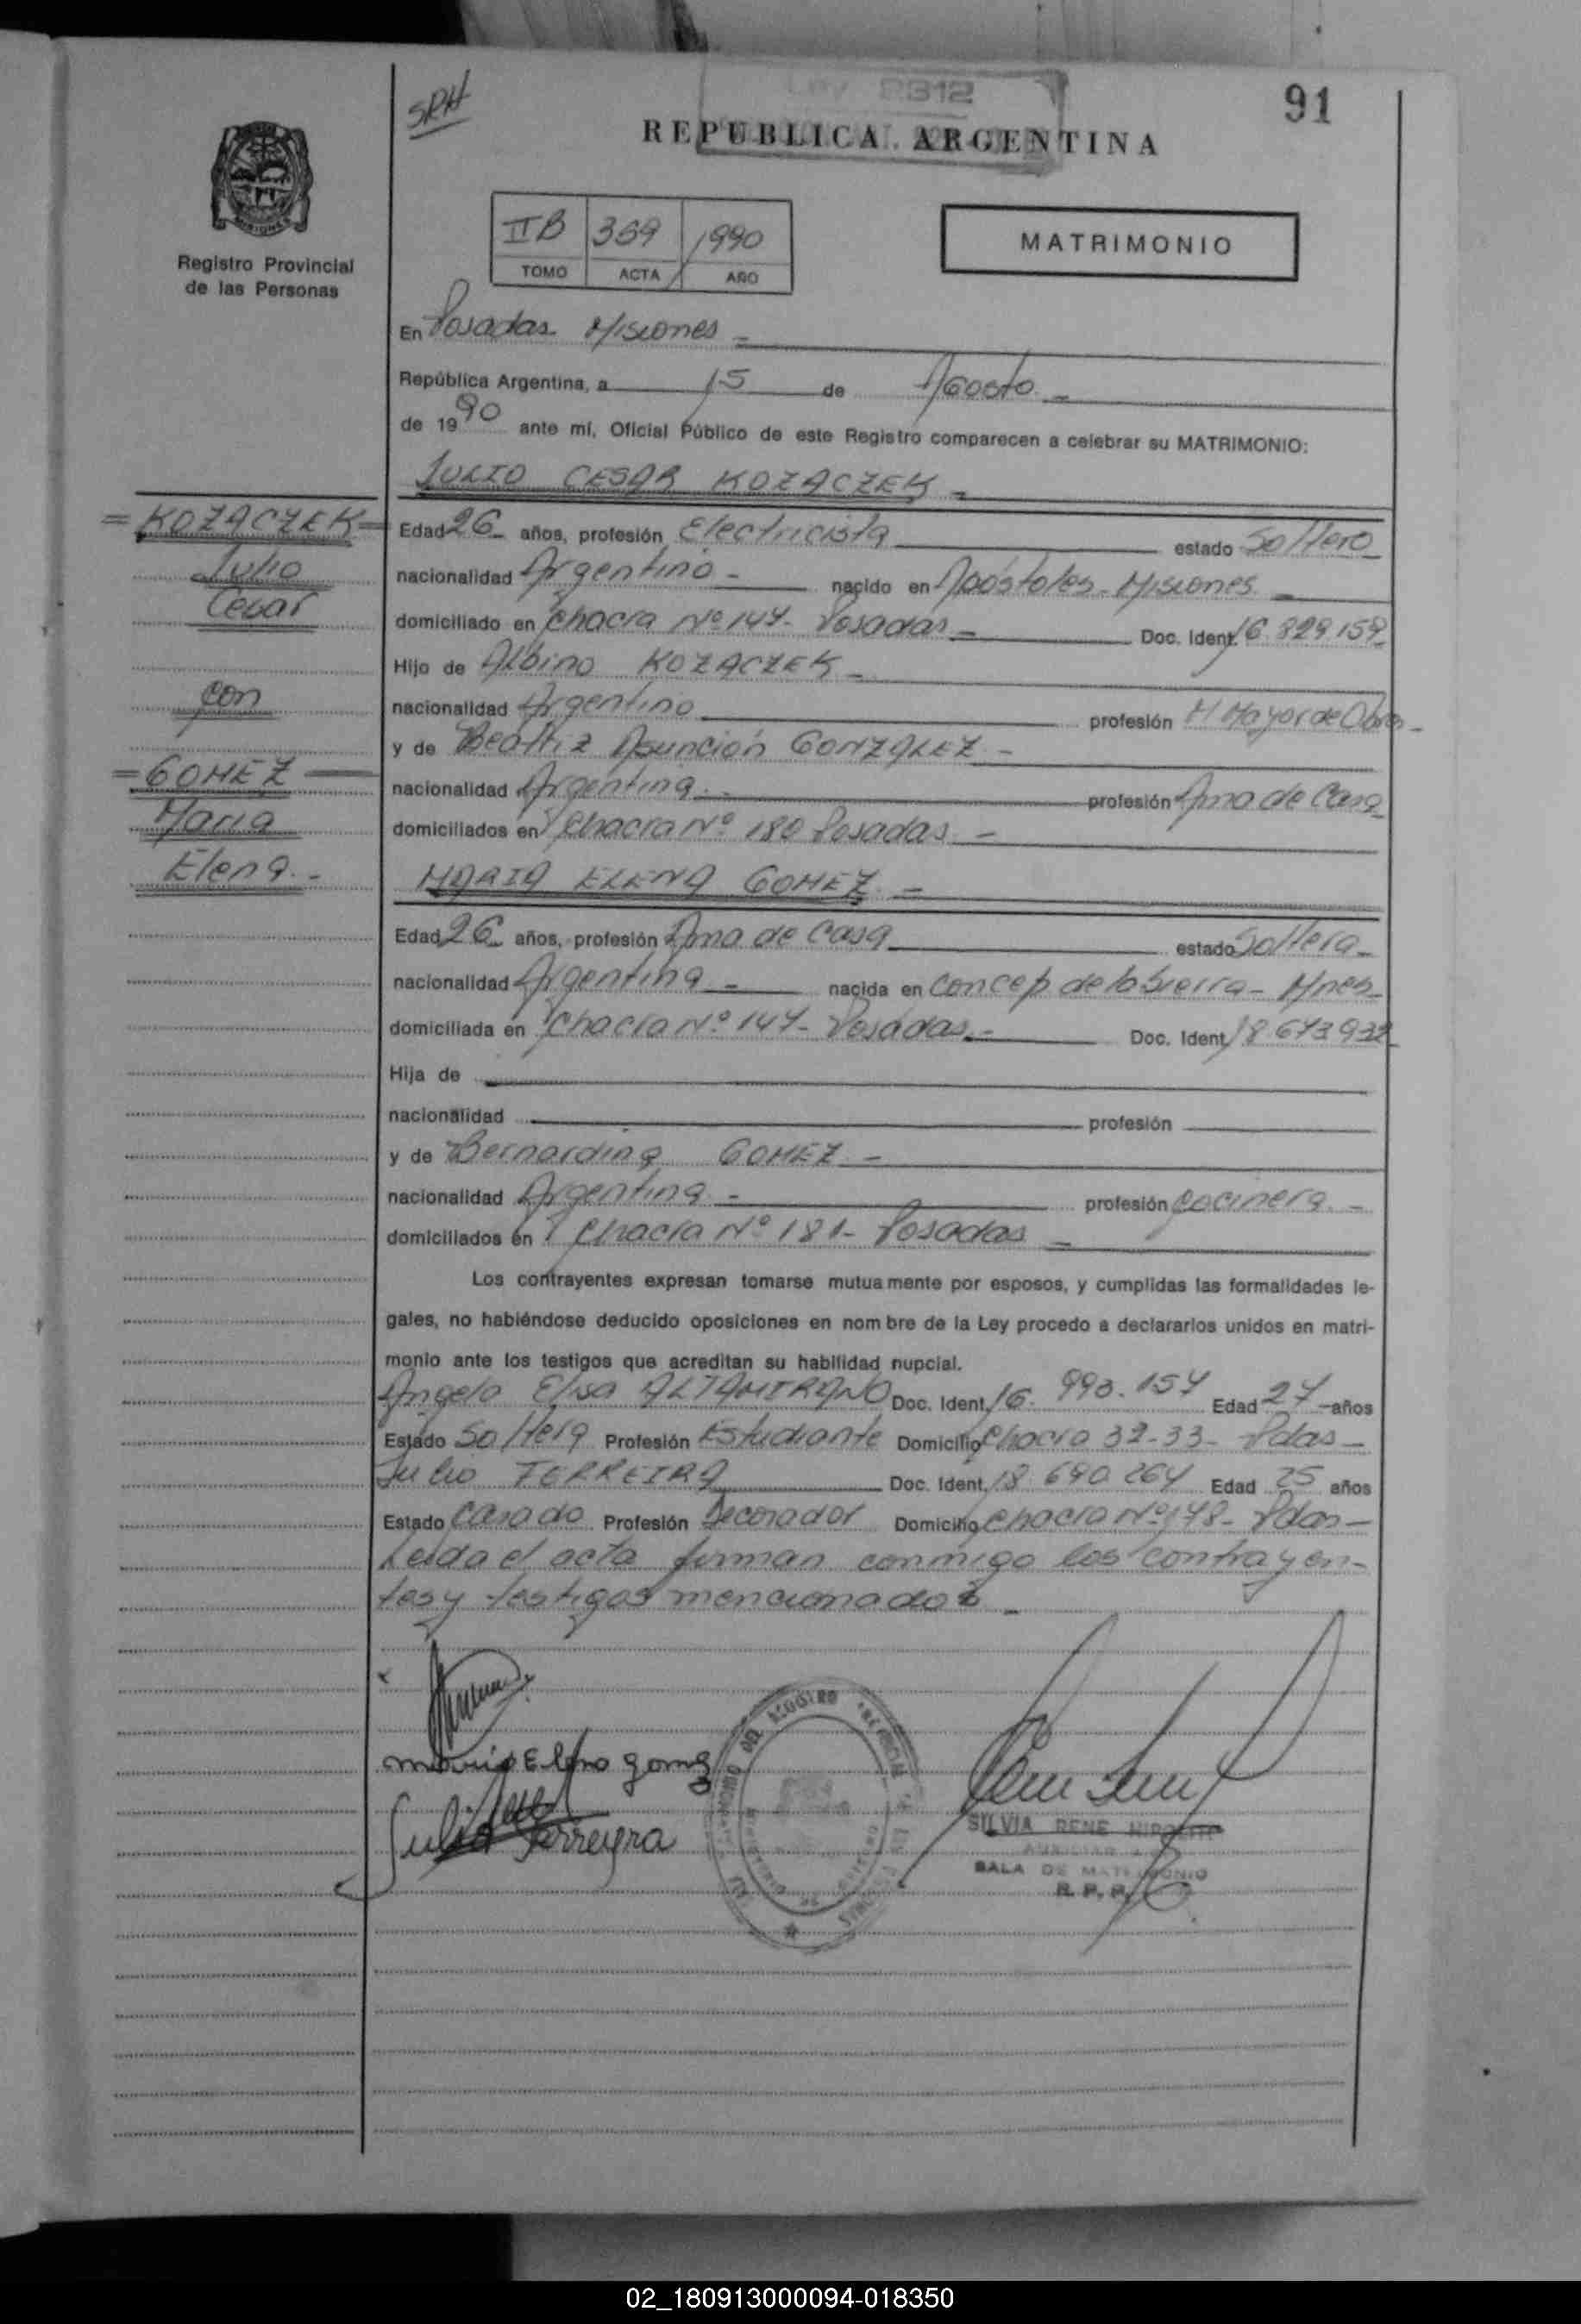 SRH
91
REPUBLICA ARGENTINA
MISIONES
Registro Provincial
de las Personas
II B 359 1990
TOMO ACTA AÑO
MATRIMONIO
En Posadas Misiones -
República Argentina, a 15 de Agosto -
de 1990 ante mí, Oficial Público de este Registro comparecen a celebrar su MATRIMONIO:
JULIO CESAR KOZACZEK -
= KOZACZEK =
Julio
Cesar
con
= GOMEZ
Maria
Elena -
Edad 26 años, profesión Electricista estado Soltero
nacionalidad Argentino - nacido en Apóstoles - Misiones -
domiciliado en Chacra Nº 147 - Posadas - Doc. Ident. 16.829.159
Hijo de Albino KOZACZEK -
nacionalidad Argentino profesión M Mayor de Obras -
y de Beatriz Asunción GONZALEZ -
nacionalidad Argentina - profesión Ama de Casa
domiciliados en Chacra Nº 180 Posadas -
MARIA ELENA GOMEZ -
Edad 26 años, profesión Ama de Casa estado Soltera -
nacionalidad Argentina - nacida en Concep de la Sierra - Mnes -
domiciliada en Chacra Nº 147 - Posadas - Doc. Ident. 18.673.932
Hija de
nacionalidad profesión
y de Bernardina GOMEZ -
nacionalidad Argentina - profesión Cocinera -
domiciliados en Chacra Nº 181 - Posadas -
Los contrayentes expresan tomarse mutuamente por esposos, y cumplidas las formalidades le-
gales, no habiéndose deducido oposiciones en nombre de la Ley procedo a declararlos unidos en matri-
monio ante los testigos que acreditan su habilidad nupcial.
Angela Elisa ALTAMIRANO Doc. Ident. 16.993.157 Edad 27 años
Estado Soltera Profesión Estudiante Domicilio Chacra 32-33 - Pdas -
Julio FERREIRA Doc. Ident. 18.690.264 Edad 25 años
Estado Casado Profesión Decorador Domicilio Chacra Nº 148 - Pdas -
Leida el acta firman conmigo los contrayen-
tes y testigos mencionados -
Maria Elena Gomez
Julio Ferreyra
SILVIA RENE HIPOLITO
SALA DE MATRIMONIO
R. P. P.
02_180913000094-018350